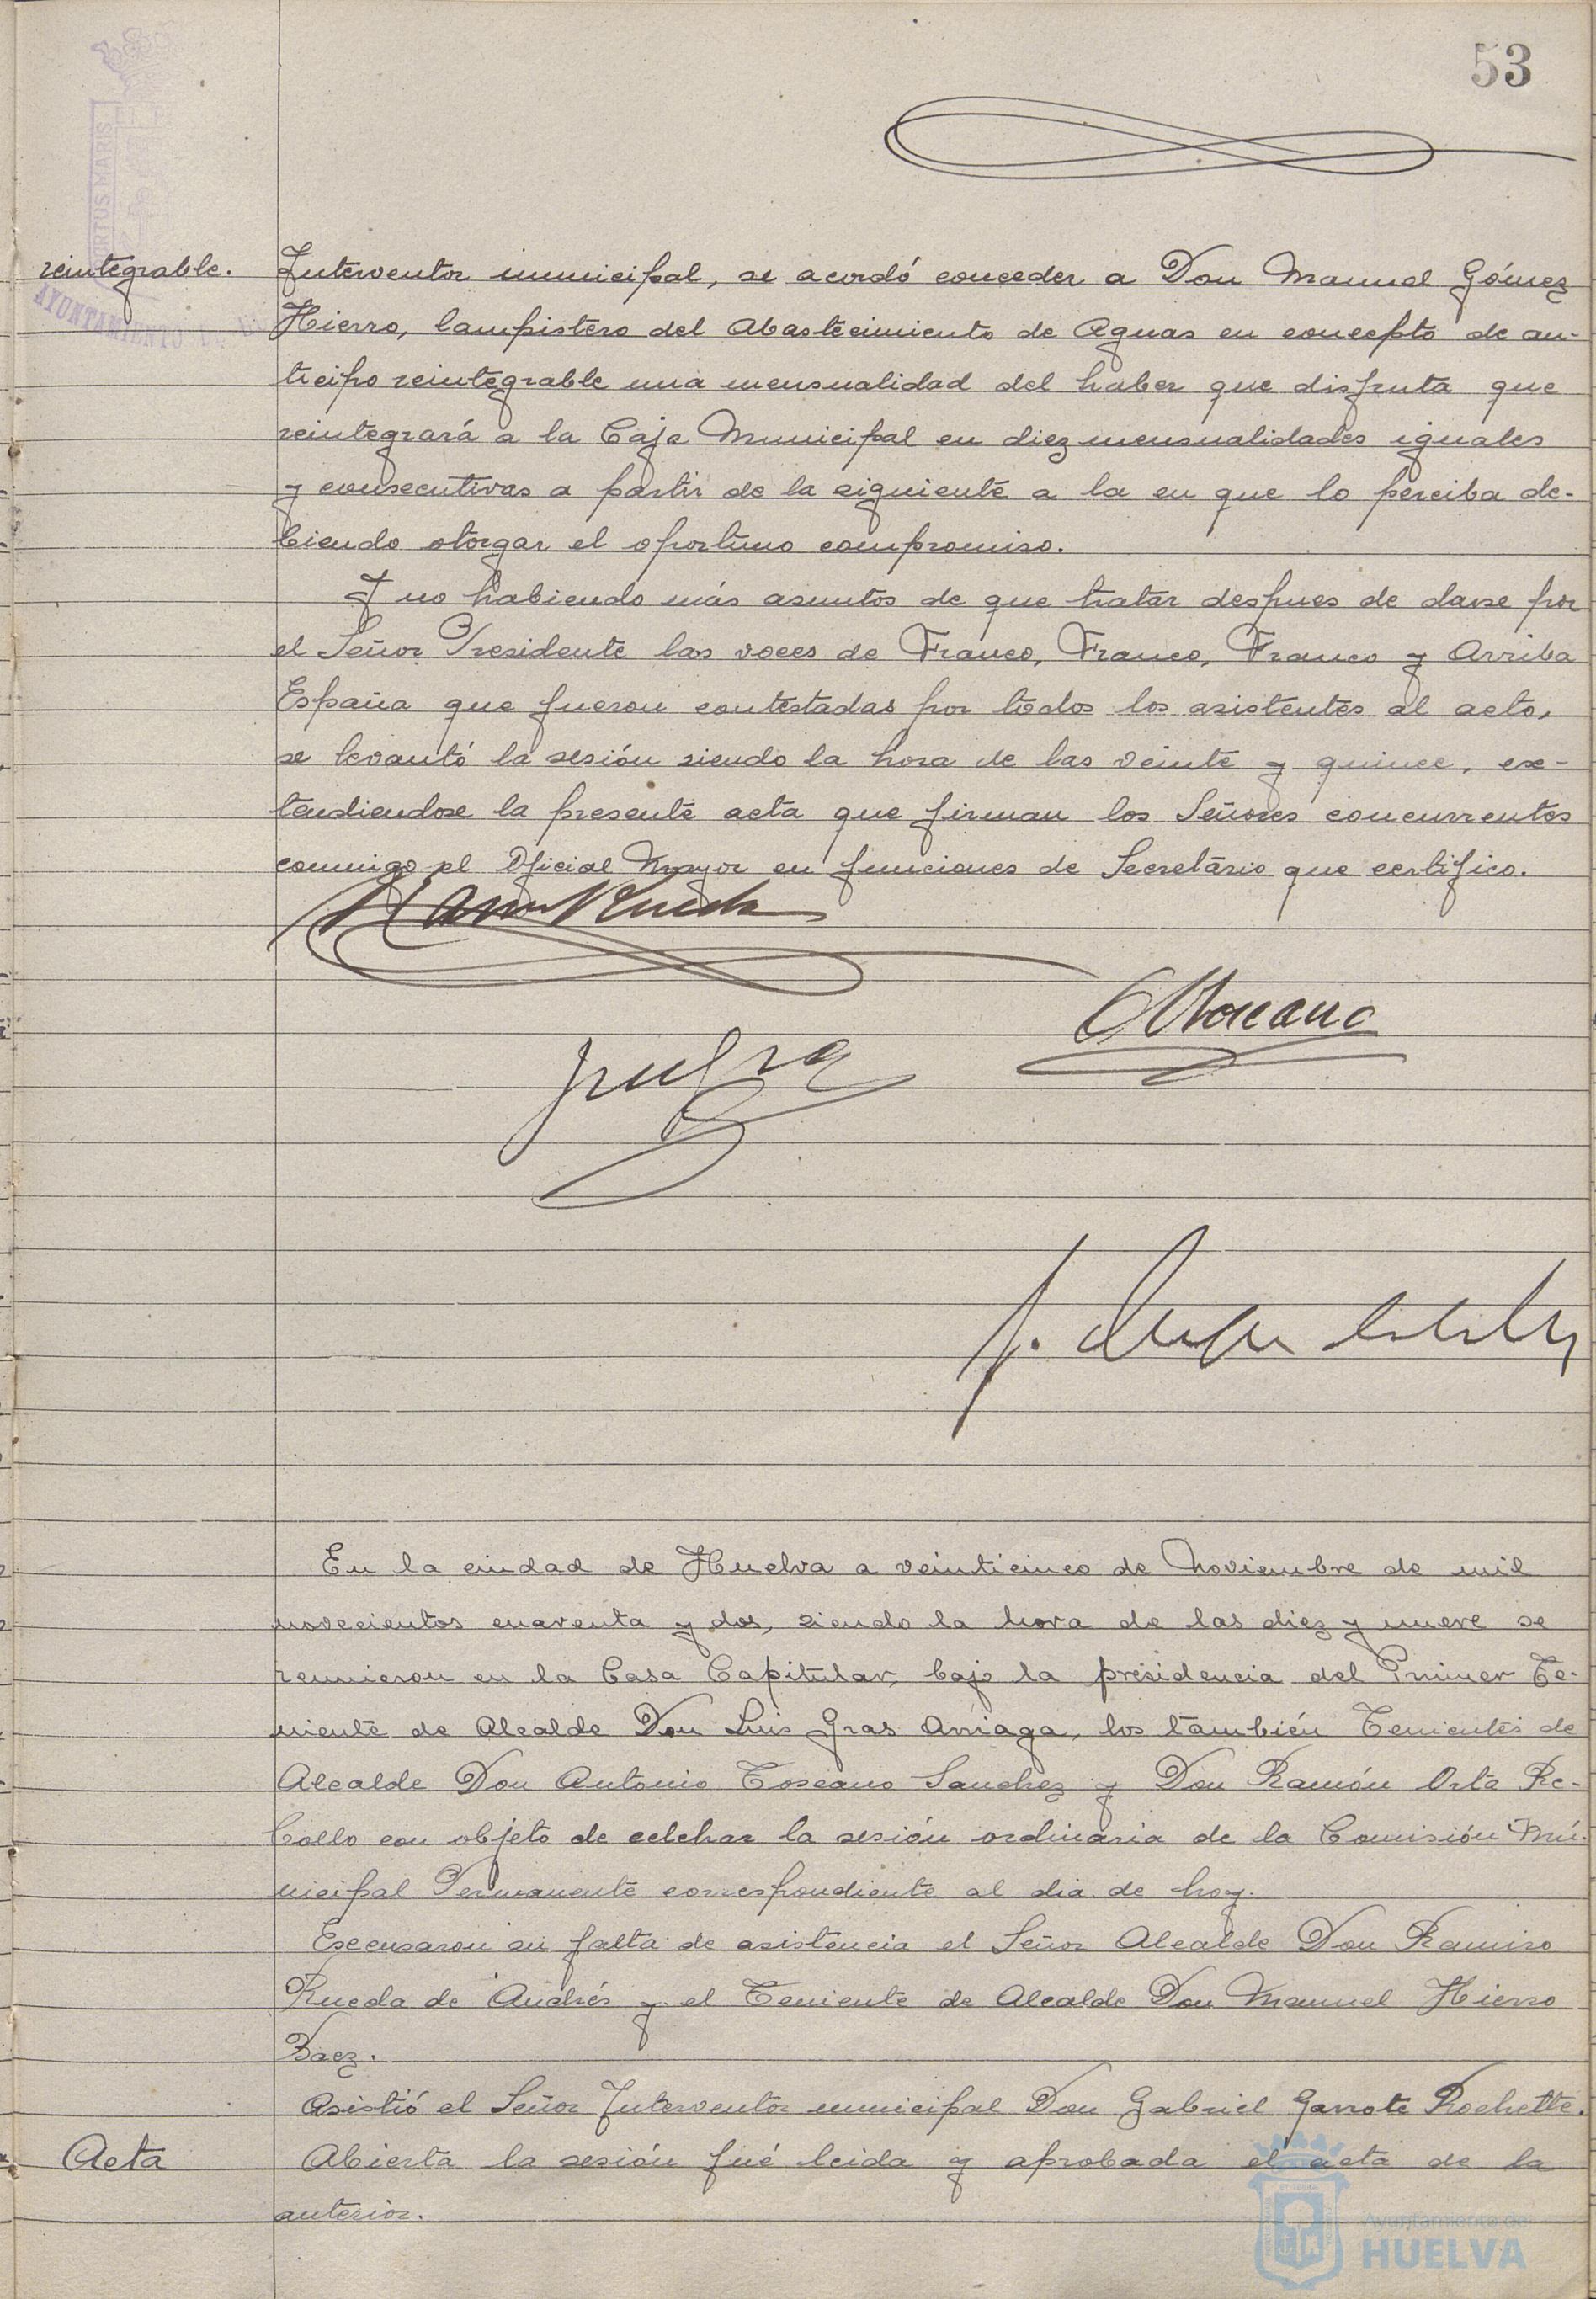 53
reintegrable.
Interventor municipal, se acordó conceder a Don Manuel Gómez
Hierro, lampistero del Abastecimiento de Aguas en concepto de an-
ticipo reintegrable una mensualidad del haber que disfruta que
reintegrará a la Caja Municipal en diez mensualidades iguales
y consecutivas a partir de la siguiente a la en que lo perciba de-
biendo otorgar el oportuno compromiso.
Y no habiendo más asuntos de que tratar despues de darse por
el Señor Presidente las voces de Franco, Franco, Franco y Arriba
España que fueron contestadas por todos los asistentes al acto,
se levantó la sesión siendo la hora de las veinte y quince, ex-
tendiendose la presente acta que firman los Señores concurrentes
conmigo el Oficial Mayor en funciones de Secretário que certifico.
En la ciudad de Huelva a veinticinco de Noviembre de mil
novecientos cuarenta y dos, siendo la hora de las diez y nueve se
reunieron en la Casa Capitular, bajo la presidencia del Primer Te-
niente de Alcalde Don Luis Gras Arriaga, los también Tenientes de
Alcalde Don Antonio Toscano Sanchez y Don Ramón Orta Re-
bollo con objeto de celebrar la sesión ordinaria de la Comisión Mu-
nicipal Permanente correspondiente al dia de hoy.
Excusaron su falta de asistencia el Señor Alcalde Don Ramiro
Rueda de Andrés y el Teniente de Alcalde Don Manuel Hierro
Baez.
Asistió el Señor Interventor municipal Don Gabriel Garrote Rochette.
Acta
Abierta la sesión fué leida y aprobada el acta de la
anterior.
AYUNTAMIENTO DE
Ayuntamiento de
HUELVA